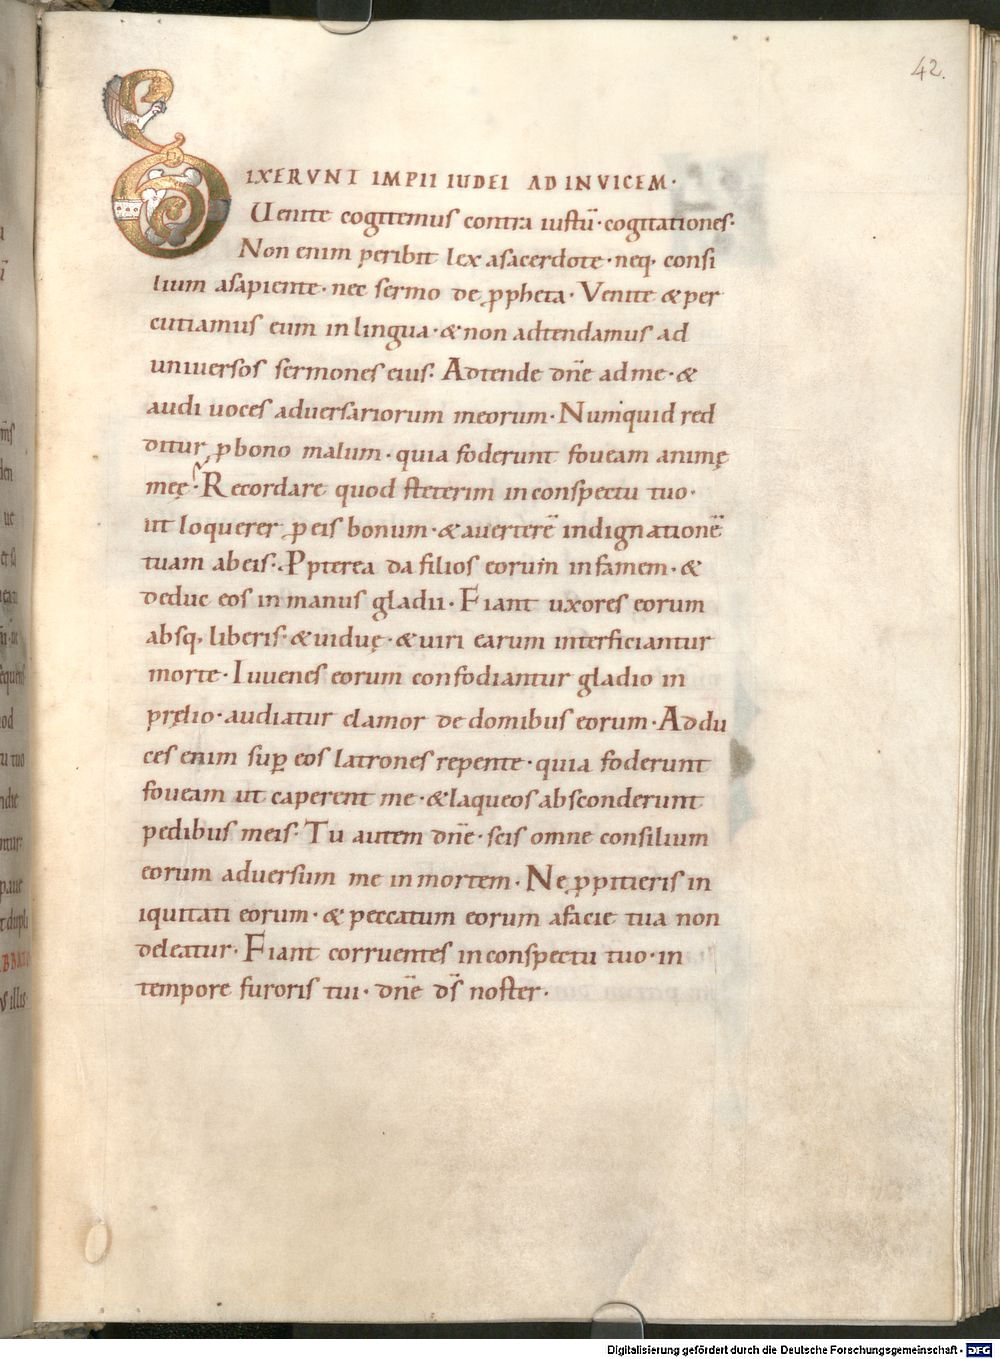 42.
DIXERVNT IMPII IUDEI AD INVICEM·
Uenite cogitemus contra iustū· cogitationes·
Non enim peribit lex a sacerdote· neq· consi
lium a sapiente· nec sermo de ꝓpheta· Venite & per
cutiamus eum in lingua· & non adtendamus ad
universos sermones eius· Adtende dn̄e ad me· &
audi uoces adversariorum meorum· Numquid red
ditur ꝓ bono malum· quia foderunt foveam animę
meę· Recordare quod steterim in conspectu tuo·
ut loquerer ꝓ eis bonum· & averterē indignationē
tuam ab eis· Ppterea da filios eorum in famem· &
deduc eos in manus gladii· Fiant uxores eorum
absq· liberis· & viduę· & viri earum interficiantur
morte· Iuvenes eorum confodiantur gladio in
pręlio· audiatur clamor de domibus eorum· Addu
ces enim suꝑ eos latrones repente· quia foderunt
foveam ut caperent me· & laqueos absconderunt
pedibus meis· Tu autem dn̄e· scis omne consilium
eorum adversum me in mortem· Ne ꝓpitieris in
iquitati eorum· & peccatum eorum a facie tua non
deleatur· Fiant corruentes in conspectu tuo· in
tempore furoris tui· dn̄e ds̄ noster·
Digitalisierung gefördert durch die Deutsche Forschungsgemeinschaft - DFG